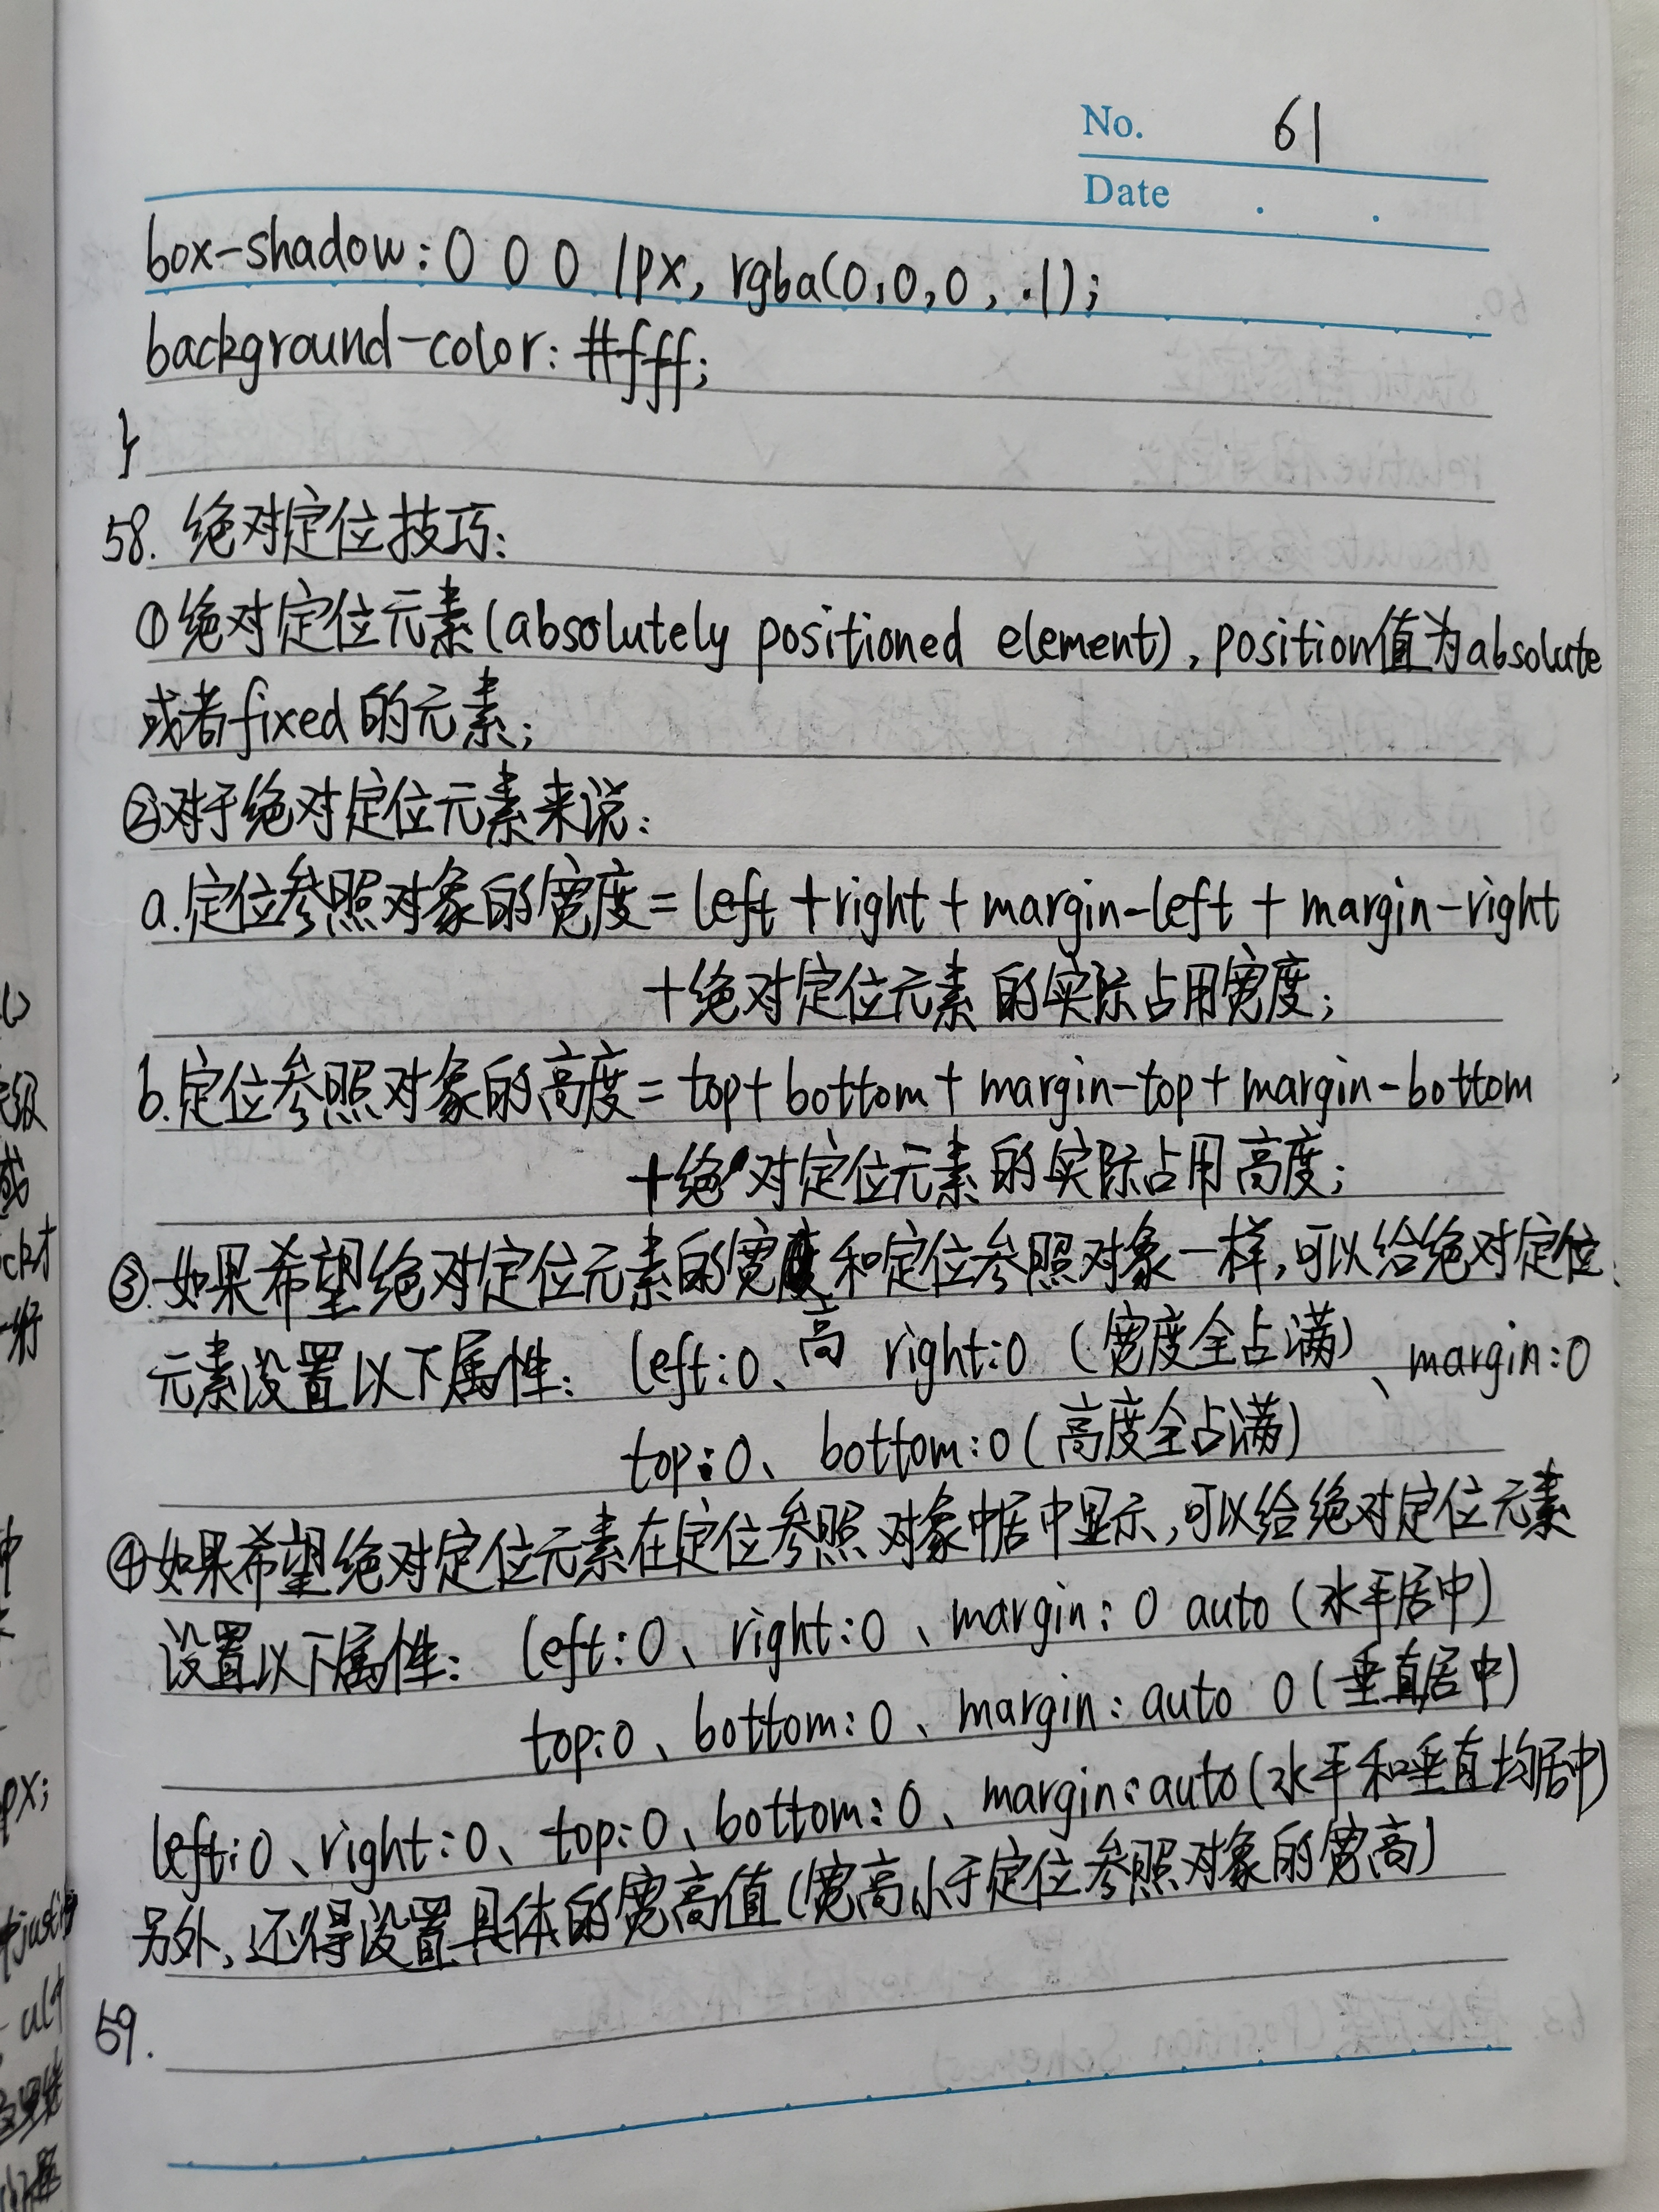 No. 61
Date . .
box-shadow: 0 0 0 1px, rgba(0,0,0,.1);
background-color: #fff;
}
58. 绝对定位技巧:
①绝对定位元素(absolutely positioned element), position值为absolute
或者fixed的元素;
②对于绝对定位元素来说:
a.定位参照对象的宽度=left+right+margin-left+margin-right
+绝对定位元素的实际占用宽度;
b.定位参照对象的高度=top+bottom+margin-top+margin-bottom
+绝对定位元素的实际占用高度;
③.如果希望绝对定位元素的宽度和定位参照对象一样,可以给绝对定位
高
元素设置以下属性: left:0、right:0 (宽度全占满)、margin:0
top:0、bottom:0(高度全占满)
④如果希望绝对定位元素在定位参照对象中居中显示,可以给绝对定位元素
设置以下属性: left:0、right:0、margin: 0 auto (水平居中)
top:0、bottom:0、margin: auto 0(垂直居中)
left:0、right:0、top:0、bottom:0、margin:auto(水平和垂直均居中)
另外,还得设置具体的宽高值(宽高小于定位参照对象的宽高)
59.